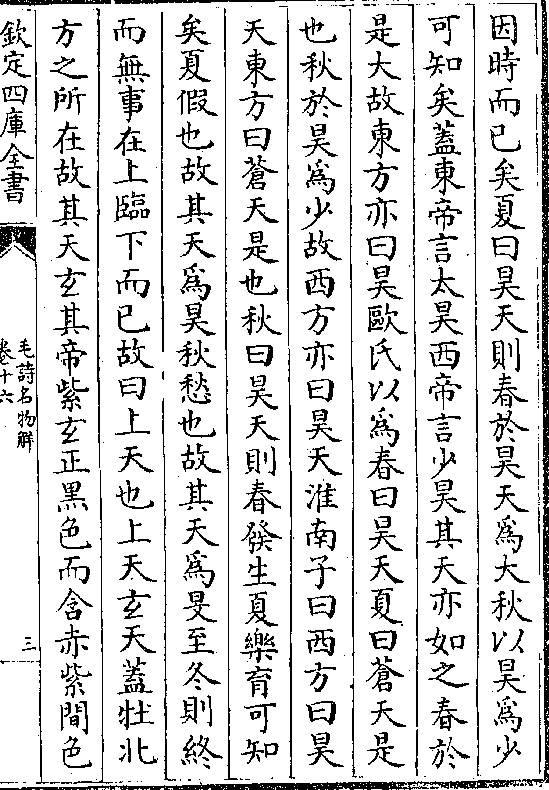 因時而已矣夏曰昊天則春於昊天為大秋以昊為少
可知矣蓋東帝言太昊西帝言少昊其天亦如之春於
是大故東方亦曰昊歐氏以為春曰昊天夏曰蒼天是
也秋於昊為少故西方亦曰昊天淮南子曰西方曰昊
天東方曰蒼天是也秋曰旻天則春發生夏樂育可知
矣夏假也故其天為昊秋愁也故其天為旻至冬則終
而無事在上臨下而已故曰上天也上天玄天蓋牡北
方之所在故其天玄其帝紫玄正黑色而含赤紫間色
欽定四庫全書
毛詩名物解
卷十六
三